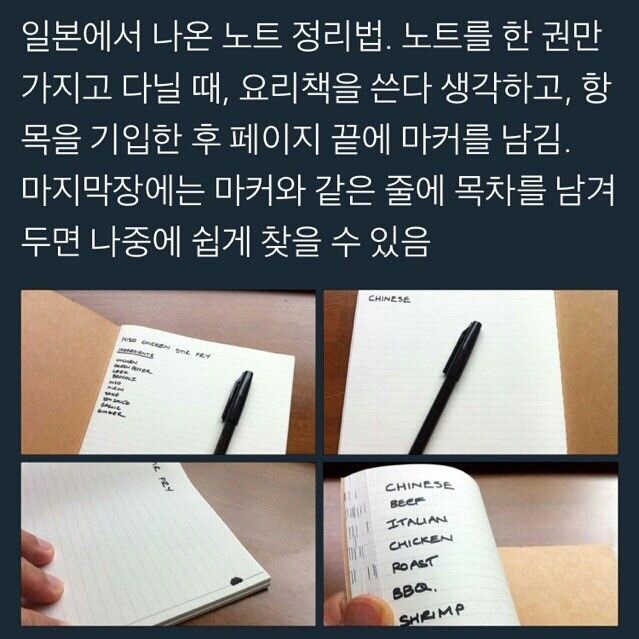 일본에서 나온 노트 정리법. 노트를 한 권만
가지고 다닐 때, 요리책을 쓴다 생각하고, 항
목을 기입한 후 페이지 끝에 마커를 남김.
마지막장에는 마커와 같은 줄에 목차를 남겨
두면 나중에 쉽게 찾을 수 있음
MISO CHICKEN STIR FRY
INGREDIENTS
CHICKEN
GREEN PEPPER
LEEK
BROCOLI
MISO
MIRIN
SAKE
SOY SAUCE
GARLIC
GINGER
CHINESE
STIR FRY
CHINESE
BEEF
ITALIAN
CHICKEN
ROAST
BBQ.
SHRIMP